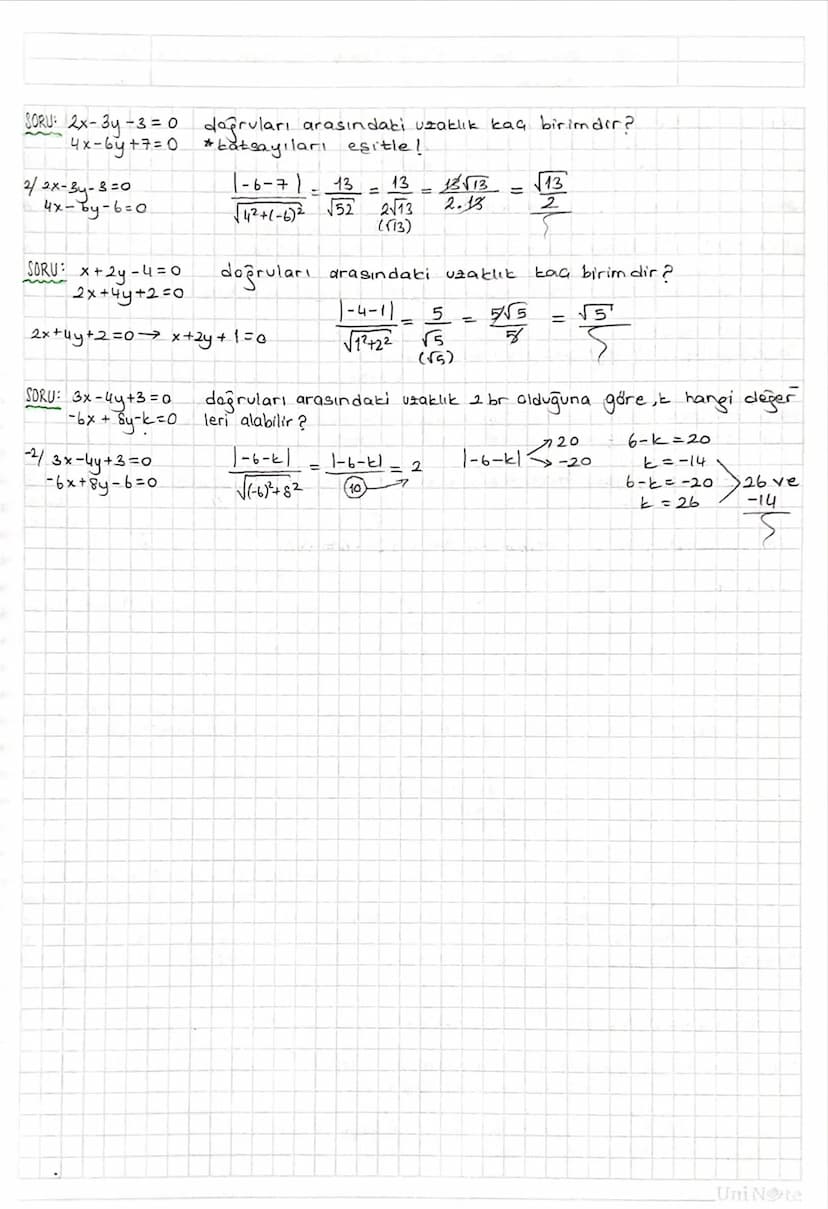 SORU: 2x-3y-3=0 doğruları arasındaki uzaklık kaç birimdir?
4x-6y+7=0 *katsayıları eşitle!
2/ 2x-3y-3=0
4x-6y-6=0
|-6-7|/√(4²+(-6)²) = 13/√52 = 13/2√13 (√13) = 13√13/2.13 = √13/2
SORU: x+2y-4=0 doğruları arasındaki uzaklık kaç birimdir?
2x+4y+2=0
2x+4y+2=0 → x+2y+1=0
|-4-1|/√(1²+2²) = 5/√5 (√5) = 5√5/5 = √5
SORU: 3x-4y+3=0 doğruları arasındaki uzaklık 2 br olduğuna göre, k hangi değer
-6x+8y-k=0 leri alabilir?
-2/ 3x-4y+3=0
-6x+8y-6=0
|-6-k|/√((-6)²+8²) = |-6-k|/10 = 2
|-6-k| 20
-20
6-k=20
k=-14
6-k=-20
k=26
26 ve
-14
UniNote